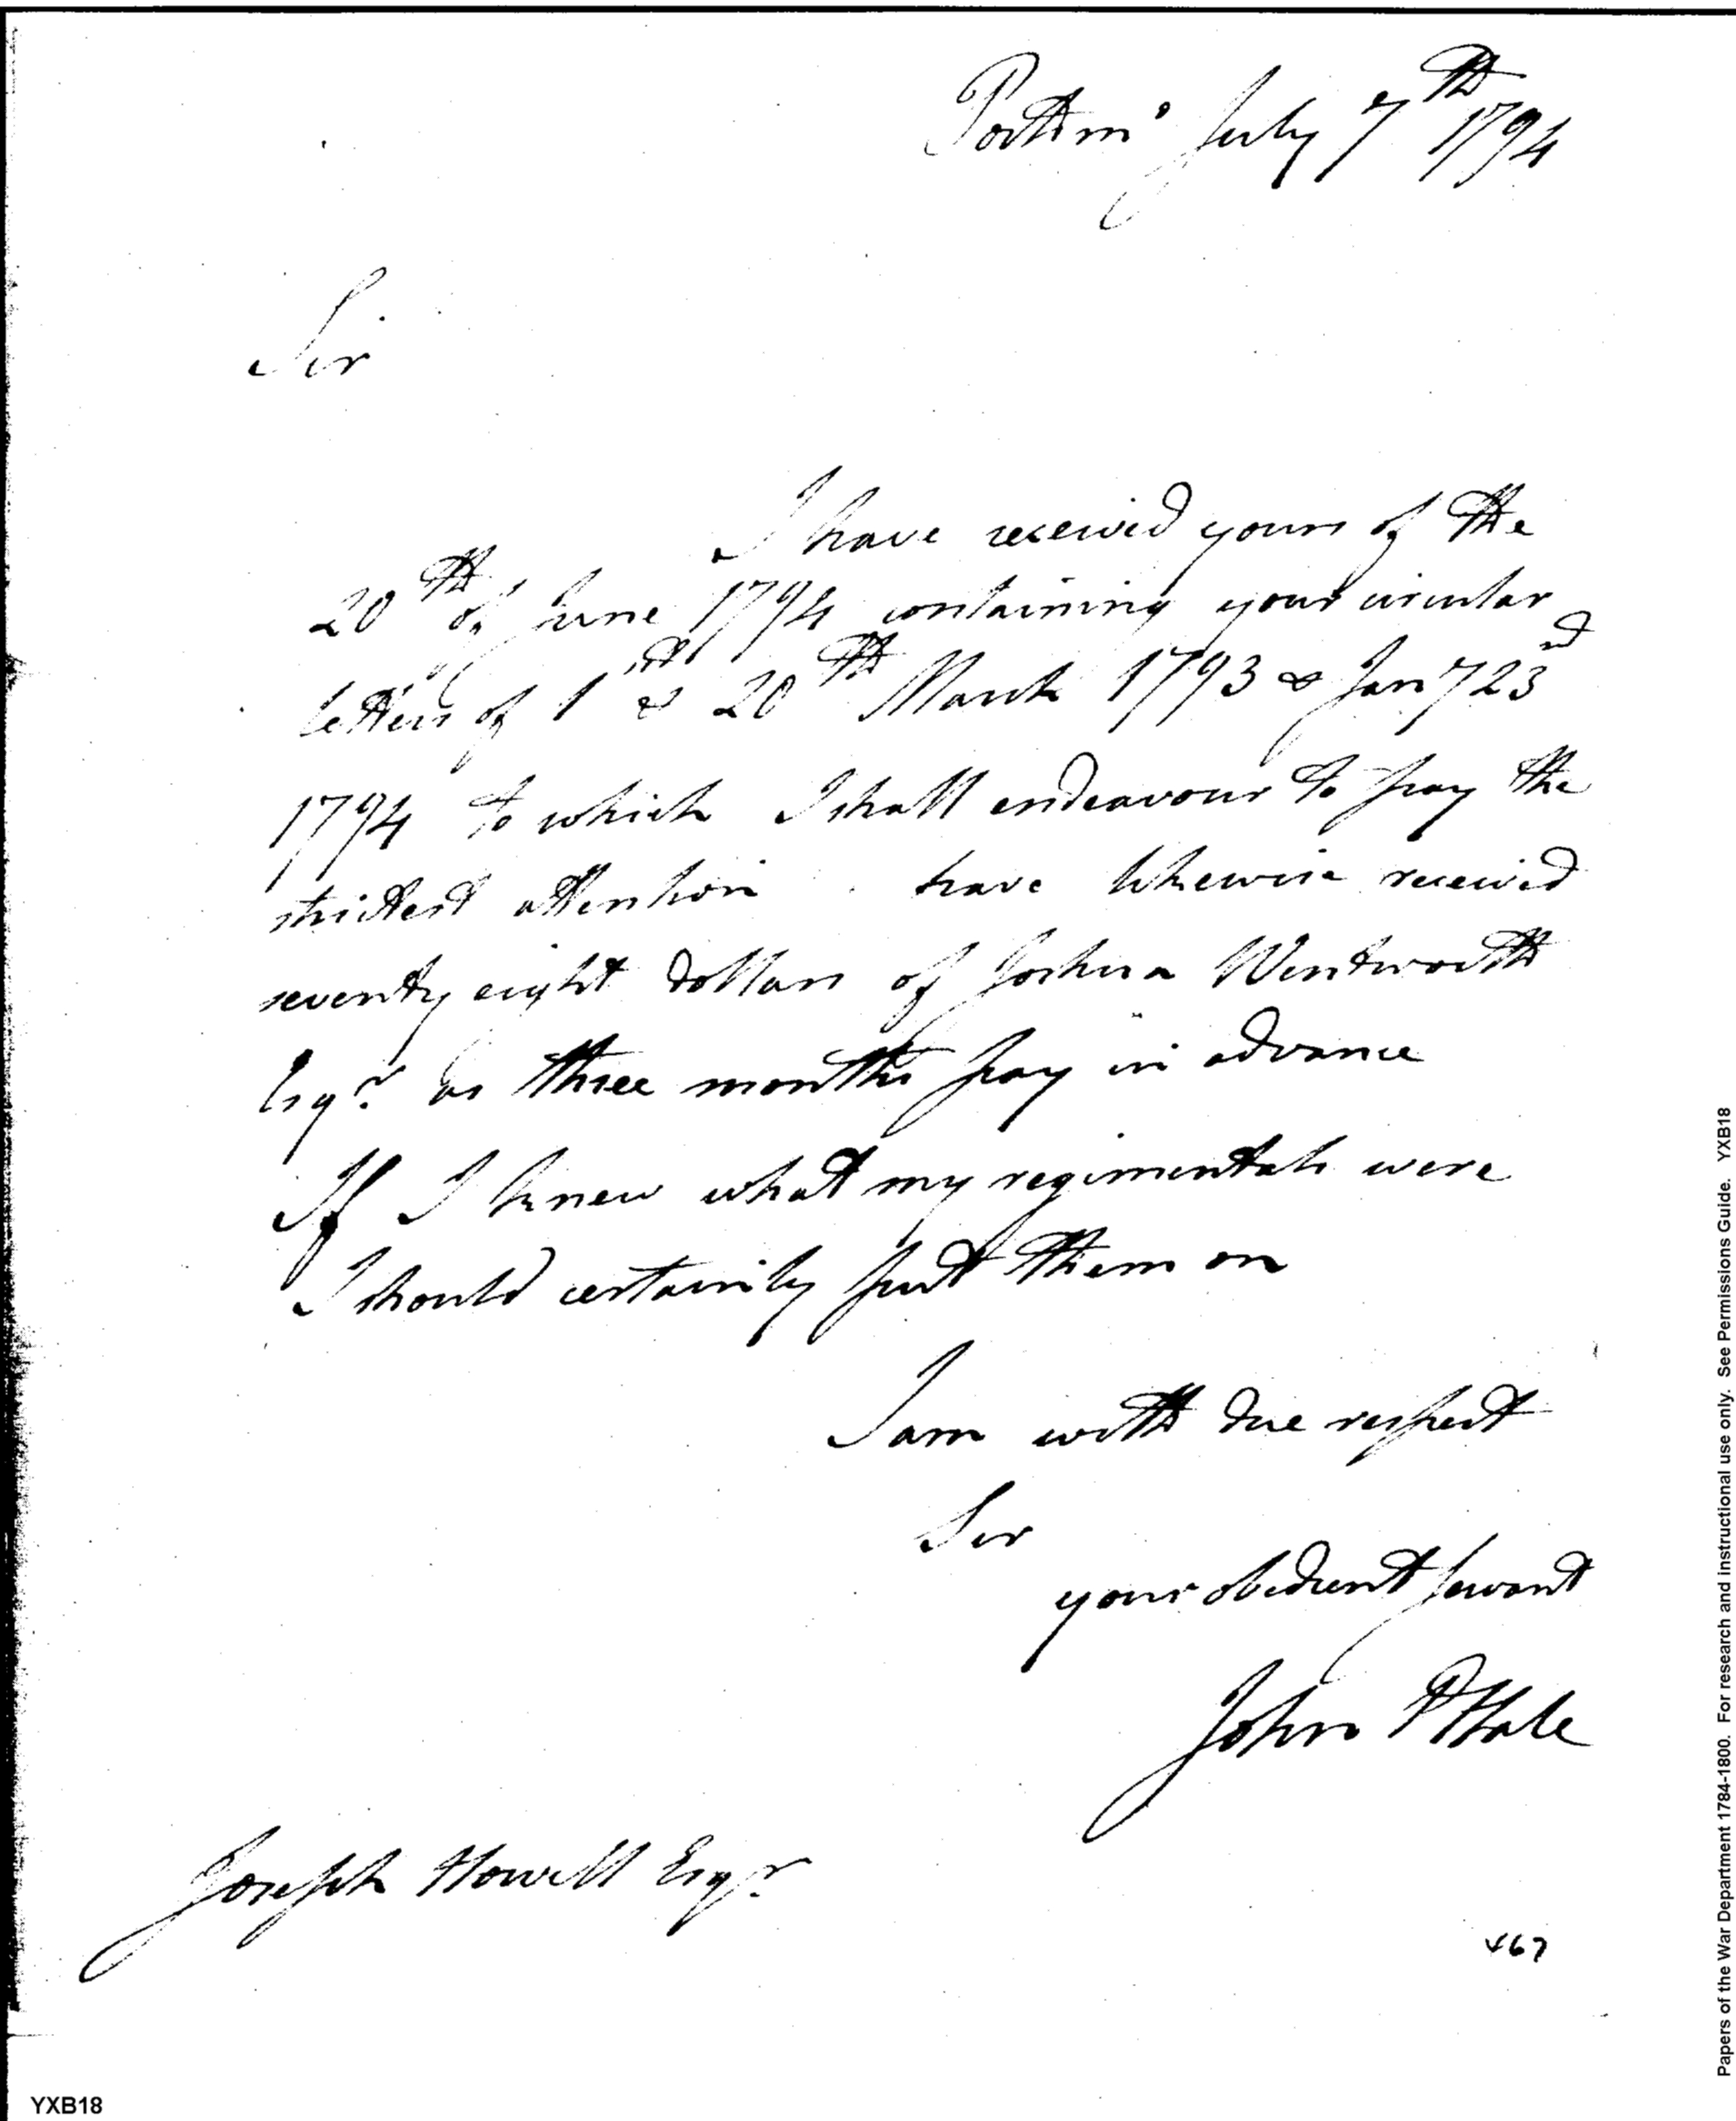 Portsmo July 7th 1794
Sir
I have received yours of the
20th of June 1794 containing your circular
letters of 1st & 20th March 1793 & Jany 23rd
1794 to which I shall endeavour to pay the
strictest attention have likewise received
seventy eight dollars of Joshua Wentworth
Esqr as three months pay in advance
If I knew what my regimentals were
I should certainly put them on
I am with due respect
Sir
your obedient servant
John P Hale
Joseph Howell Esqr
467
YXB18
Papers of the War Department 1784-1800. For research and instructional use only. See Permissions Guide. YXB18